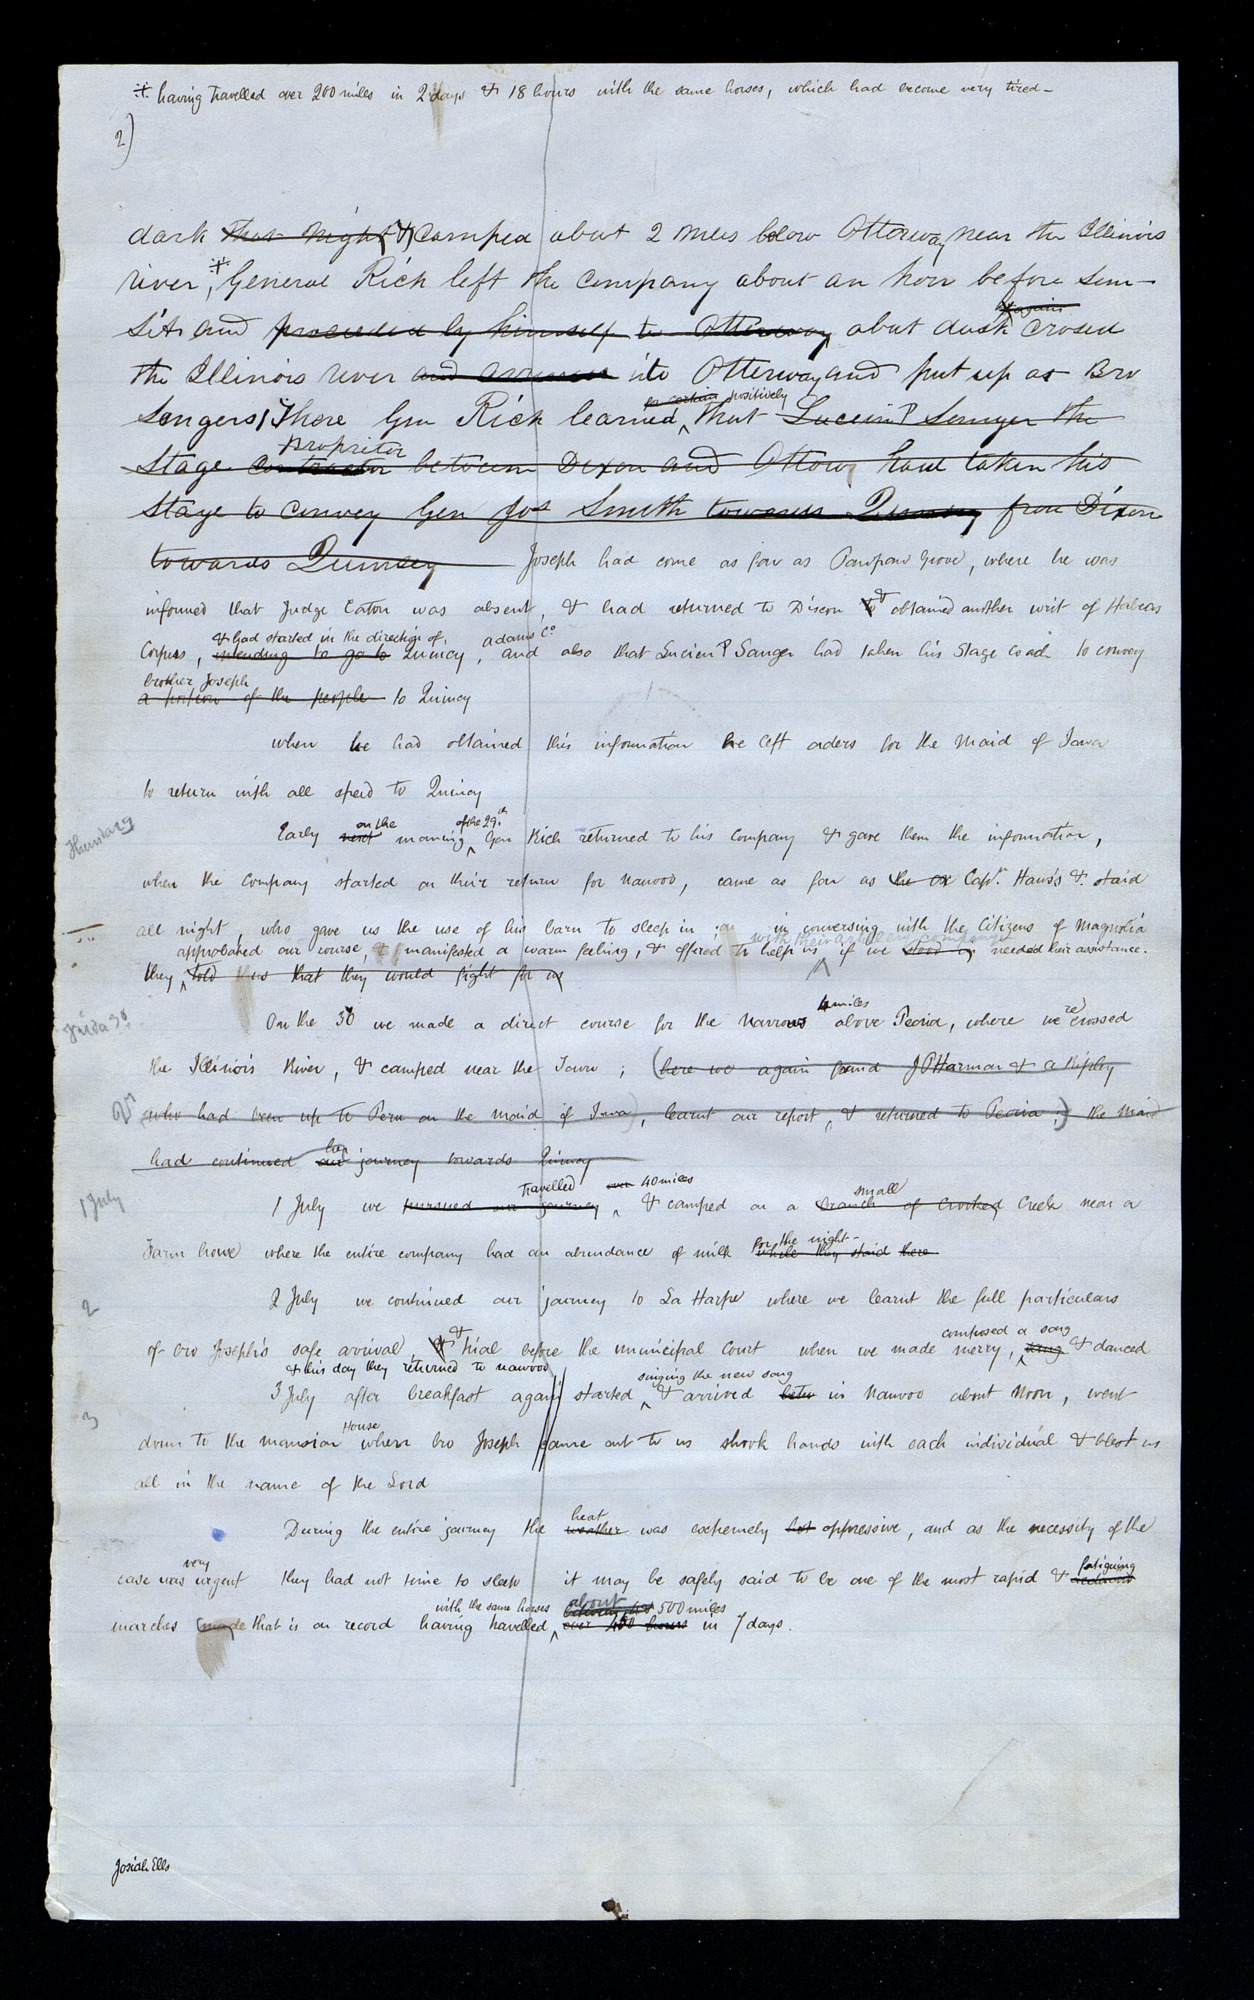 ⁎ having travelled over 200 miles in 2 days & 18 hours with the same horses, which had become very tired—
2)
dark that night & camped about 2 miles below Otterway near the Illinois
river, ⁎ General Rich left the Company about an hour before sun-
sits and proceeded by himself to Otterway about dusk again crosed
the Illinois river and into Otterway and put up at Bro
Sengers, There Gen Rich learned for certain positively that Lucein P Senger the
Stage Propritor between Dixon and Ottowy have taken his
Stage to convey Gen Jos Smith towards Quinsey from Dixon
towards Quinsey Joseph had come as far as Pawpaw Grove, where he was
informed that Judge Caton was absent, & had returned to Dixon & obtained another writ of Habeas
Corpus, & had started in the direction of intending to go to Quincy, Adams Co. and also that Lucien P Sanger had taken his Stage Coach to convey
brother Joseph a portion of the people to Quincy
when he had obtained this information he left orders for the Maid of Iowa
to return with all speed to Quincy
Thursday
Early next on the morning of the 29th. Gen Rich returned to his Company & gave them the information,
when the Company started on their return for Nauvoo, came as far as the Capt. Haws's & staid
all night, who gave us the use of his barn to sleep in in conversing with the Citizens of Magnolia
they approbated our course, & manifested a warm feeling, & offered with their artillery company to help us if we needed their assistance.
told us that they would fight for us
Friday 30
On the 30 we made a direct course for the Narrows 4 miles above Peoria, where we recrossed
the Illinois River, & camped near the Town; (here we again found J P Harmon & A Ripley
who had been up to Peru on the Maid of Iowa), learnt our report, & returned to Peoria;) the Maid
had continued our her journey towards Quincy
1 July
1 July we pursued our journey travelled over 40 miles & camped on a small branch of Crooked Creek near a
Farm house where the entire company had an abundance of milk for the night— while they staid here
2
2 July we continued our journey to La Harpe where we learnt the full particulars
of bro Joseph's safe arrival, & trial before the municipal court when we made merry, composed a song sang & danced
& this day they returned to Nauvoo
3
3 July after breakfast again started singing the new song & arrived in Nauvoo about noon, went
down to the mansion House where bro Joseph came out to us shook hands with each individual & blest us
all in the name of the Lord
During the entire journey the weather heat was extremely hot oppressive, and as the necessity of the
case was very urgent they had not time to sleep it may be safely said to be one of the most rapid & fatiguing
marches made that is on record having travelled with the same horses about 500 miles over 400 hours in 7 days.
Josiah Ells